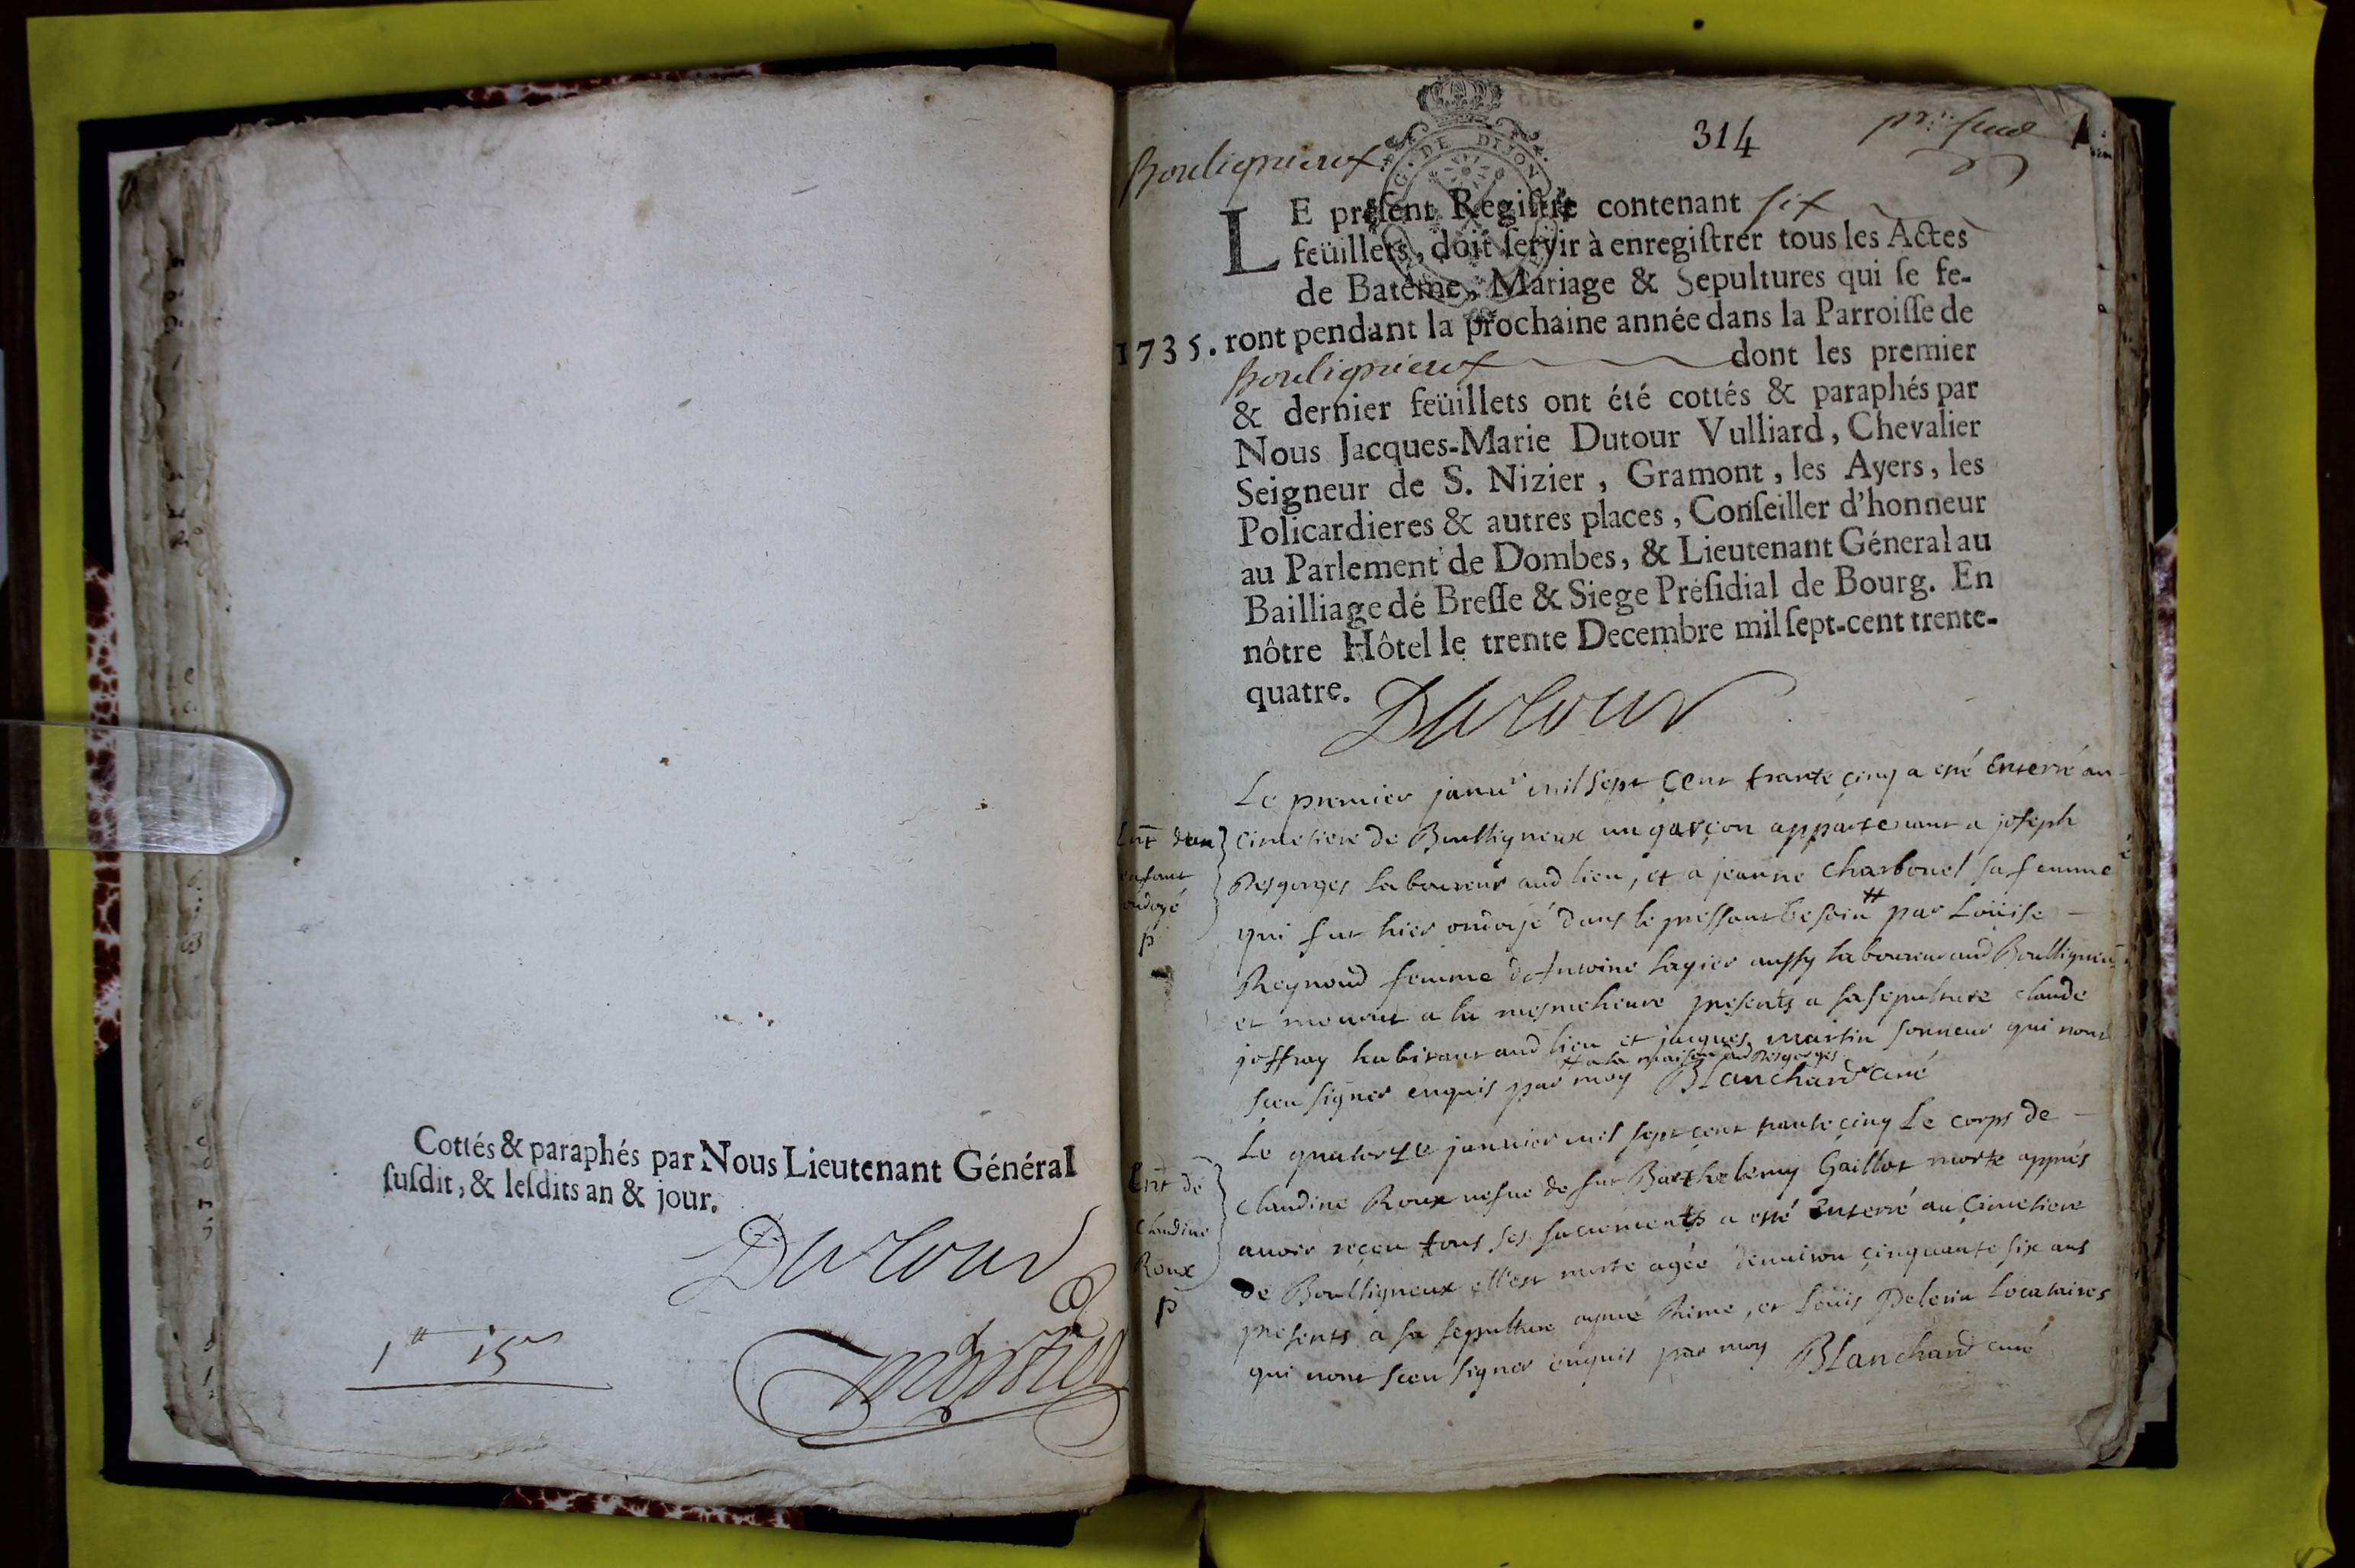 Cottés & paraphés par Nous Lieutenant Général
ſuſdit, & leſdits an & jour.
Dutour
1735.
314
Bouligneux
G. DE DIJON
LE preſent Regiſtre contenant ſix
feüillets, doit ſervir à enregiſtrer tous les Actes
de Batême, Mariage & Sepultures qui ſe fe-
ront pendant la prochaine année dans la Parroiſſe de
Bouligneux dont les premier
& dernier feüillets ont été cottés & paraphés par
Nous Jacques-Marie Dutour Vulliard, Chevalier
Seigneur de S. Nizier, Gramont, les Ayers, les
Policardieres & autres places, Conſeiller d'honneur
au Parlement de Dombes, & Lieutenant Géneral au
Bailliage dé Breſſe & Siege Préſidial de Bourg. En
nôtre Hôtel le trente Decembre mil ſept-cent trente-
quatre.
Dutour
Ent dun
enfant
ondoyé
p
Le premier janvr mil sept cent trante cinq a esté enterré au
cimetiere de Boulligneux un garçon appartenant a joseph
Desgorges laboureur aud lieu, et a jeanne Charbonel sa femme
qui fut hier ondoyé dans le pressant besoin # par Loüise
Reynoud femme d'Antoine Lagier aussy laboureur aud Boulligneux
et mourut a la mesme heure presents a sa sepulture claude
joffray habitant aud lieu et jacques martin sonneur qui nont
# a la maison dud Desgorges
sceu signer enquis par moy Blanchard curé
Ent de
Claudine
Roux
p
Le quatorze janvier mil sept cent trante cinq Le corps de
claudine Roux vefue de fut Barthelemy Gaillot morte appres
auoir reçeu tous ses sacrements a esté enterré au cimetiere
de Boulligneux ell'est morte agée denuiron cinquante six ans
presents a sa sepulture aymé Rime, et Loüis Pelerin Locataires
qui nont sceu signer enquis par moy Blanchard curé